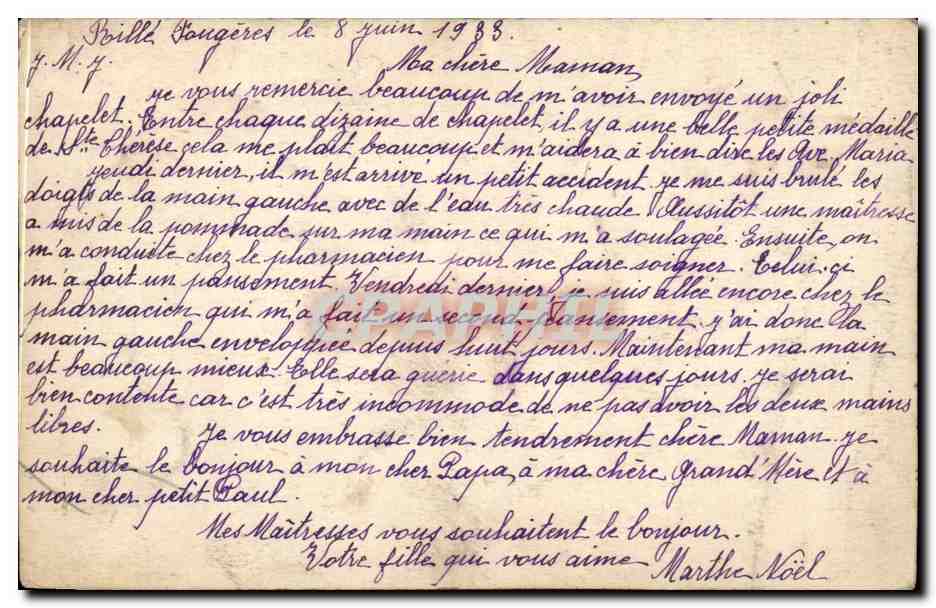 Rillé Fougères le 8 juin 1933.
J. M. J. Ma chère Maman,
Je vous remercie beaucoup de m'avoir envoyé un joli
chapelet. Entre chaque dizaine de chapelet, il y a une belle petite médaille
de Ste Thérèse cela me plaît beaucoup et m'aidera à bien dire les Ave Maria
Jeudi dernier, il m'est arrivé un petit accident. Je me suis brulé les
doigts de la main gauche avec de l'eau très chaude. Aussitôt une maîtresse
a mis de la pommade sur ma main ce qui m'a soulagée. Ensuite, on
m'a conduite chez le pharmacien pour me faire soigner. Celui-ci
m'a fait un pansement. Vendredi dernier, je suis allée encore chez le
pharmacien qui m'a fait un second pansement. j'ai donc la
main gauche enveloppée depuis huit jours. Maintenant ma main
est beaucoup mieux. Elle sera guerie dans quelques jours. Je serai
bien contente car c'est très incommode de ne pas avoir les deux mains
libres. Je vous embrasse bien tendrement chère Maman. Je
souhaite le bonjour à mon cher Papa, à ma chère Grand'Mère et à
mon cher petit Paul.
Mes Maîtresses vous souhaitent le bonjour.
Votre fille qui vous aime
Marthe Noël